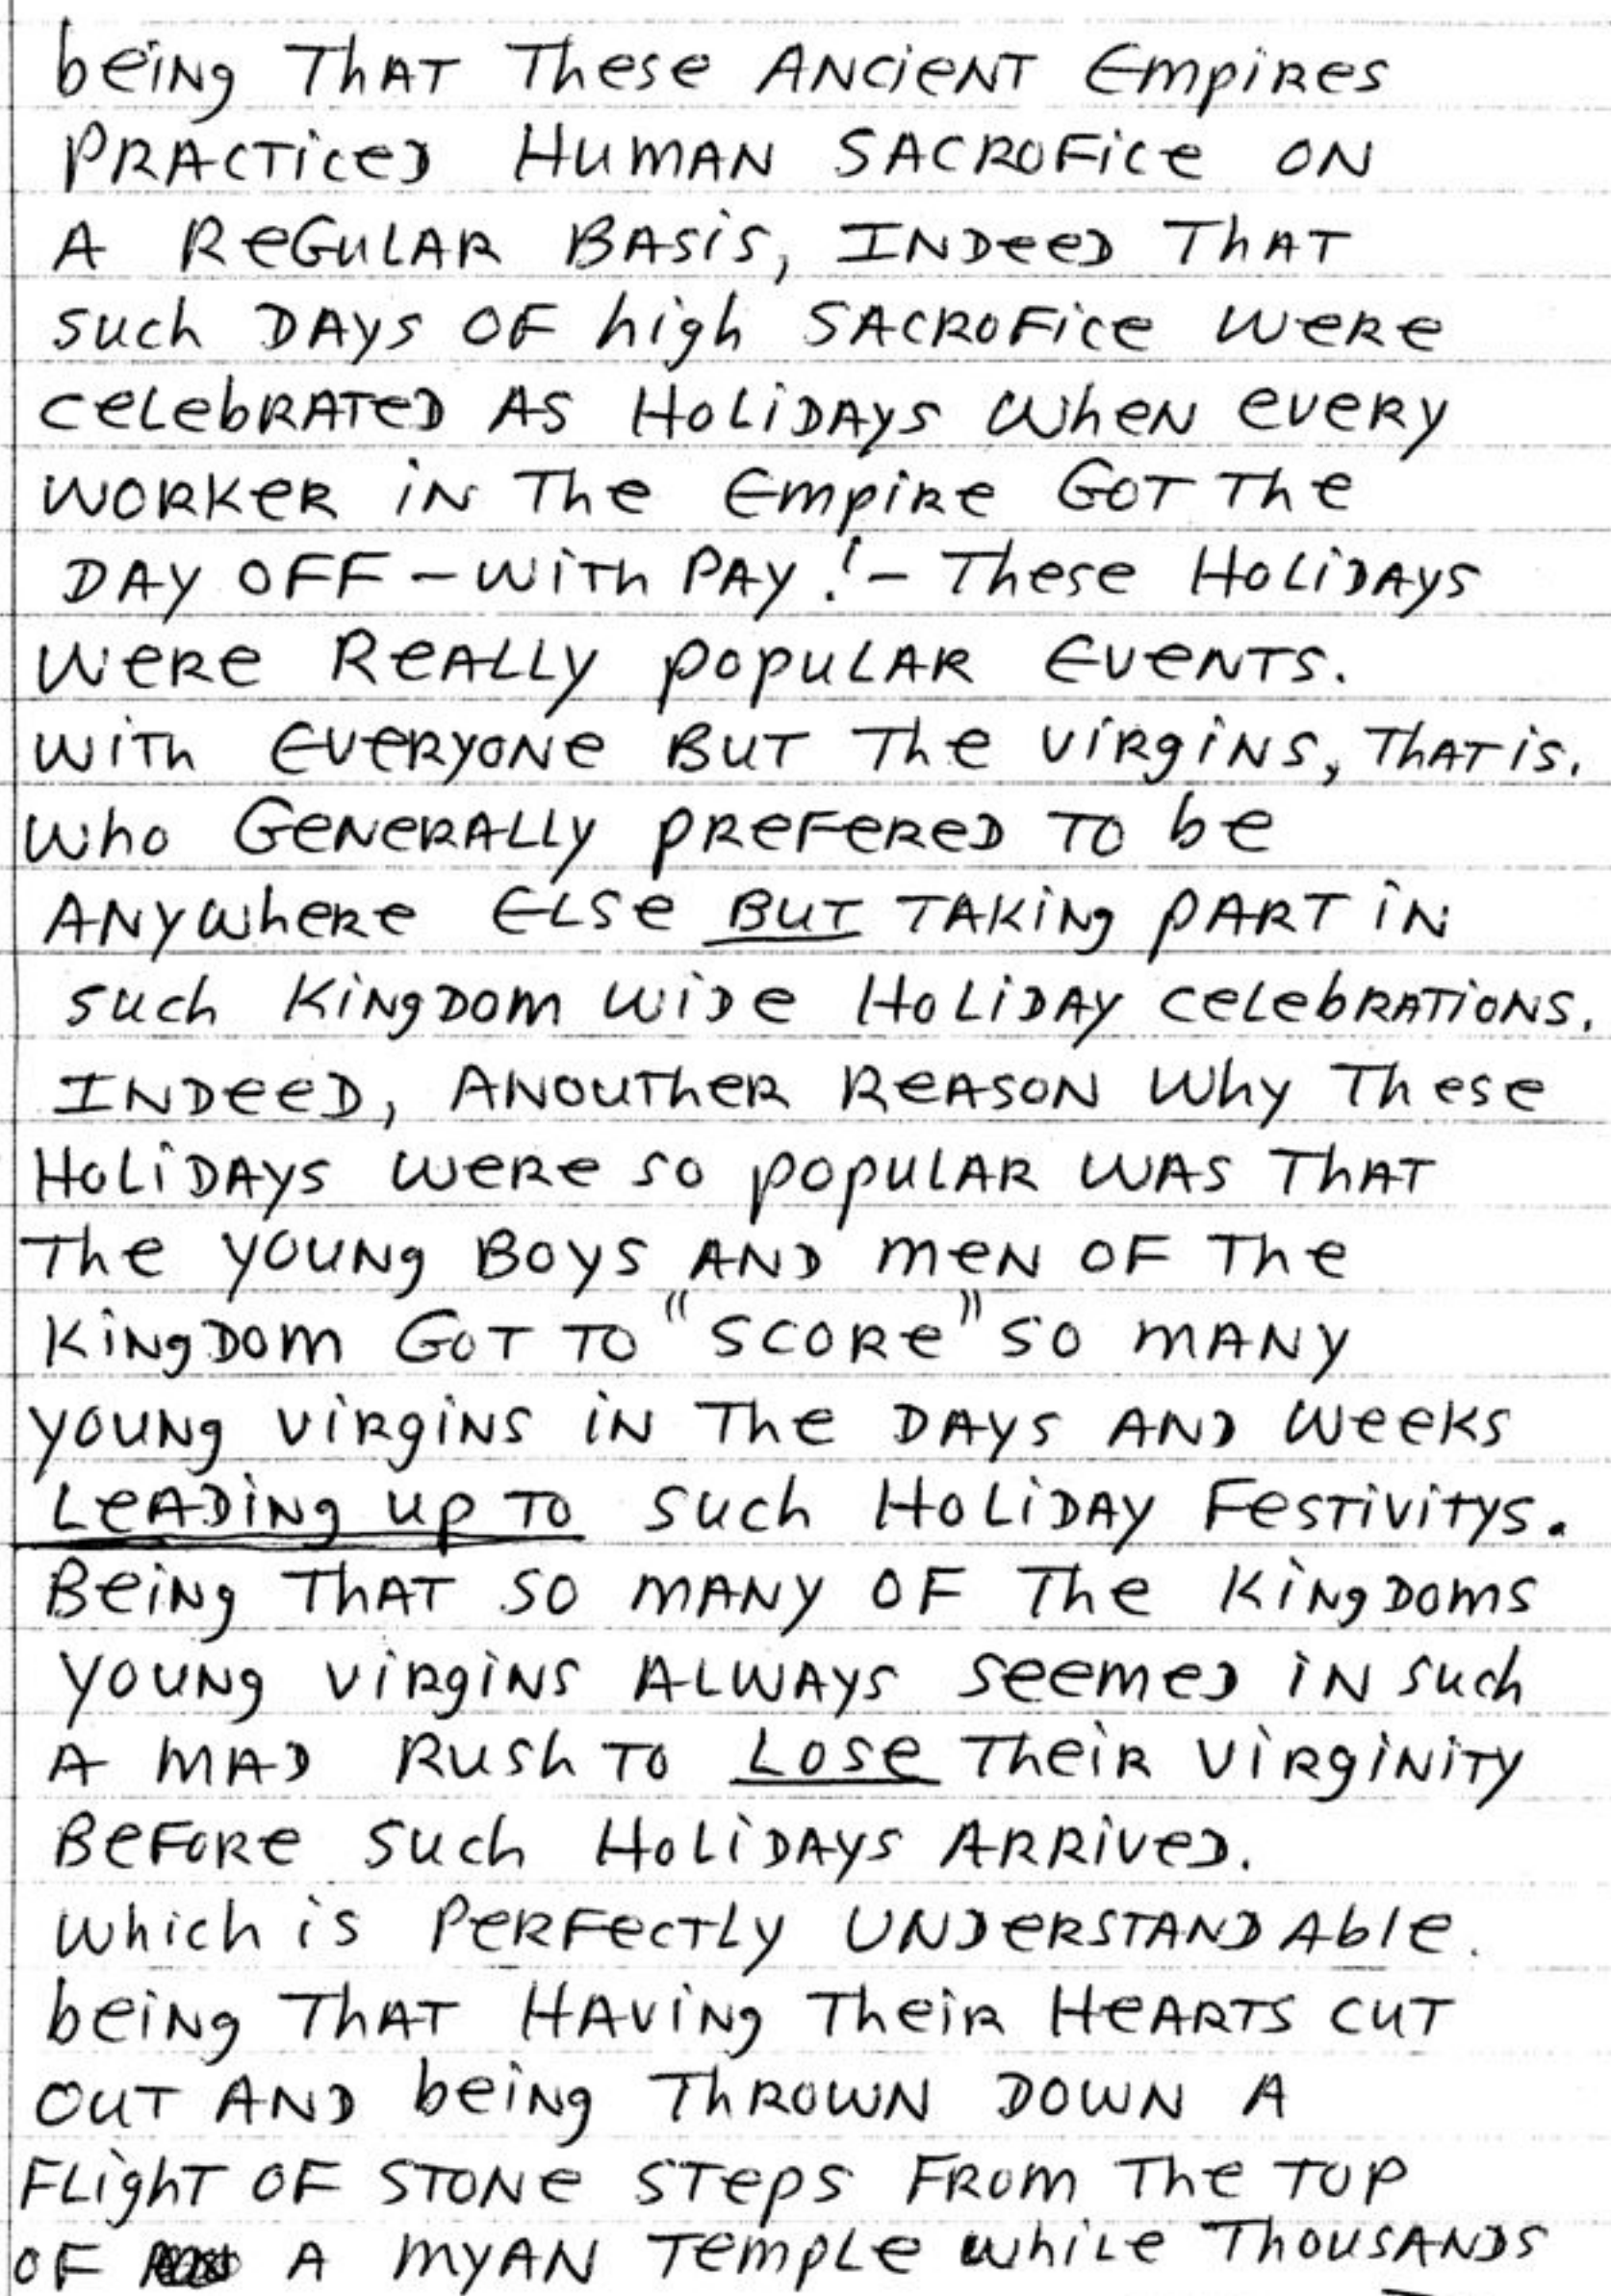 being That These Ancient Empires
Practiced Human Sacrofice on
A Regular Basis, Indeed That
such Days of high Sacrofice were
celebrated as Holidays when every
worker in The Empire Got The
Day off - with Pay! - These Holidays
were Really popular Events.
with Everyone But The virgins, That is.
who Generally prefered To be
Anywhere Else But Taking part in
such Kingdom wide Holiday celebrations.
Indeed, Anouther Reason why These
Holidays were so popular was That
The young Boys and men of The
Kingdom Got To "score" so many
young virgins in The Days and weeks
Leading up To such Holiday Festivitys.
Being That so many of The Kingdoms
young virgins Always seemed in such
A mad Rush To Lose Their virginity
Before such Holidays Arrived.
which is Perfectly Understandable.
being That Having Their Hearts cut
out And being Thrown Down A
Flight of Stone Steps From The Top
of A myan Temple while Thousands